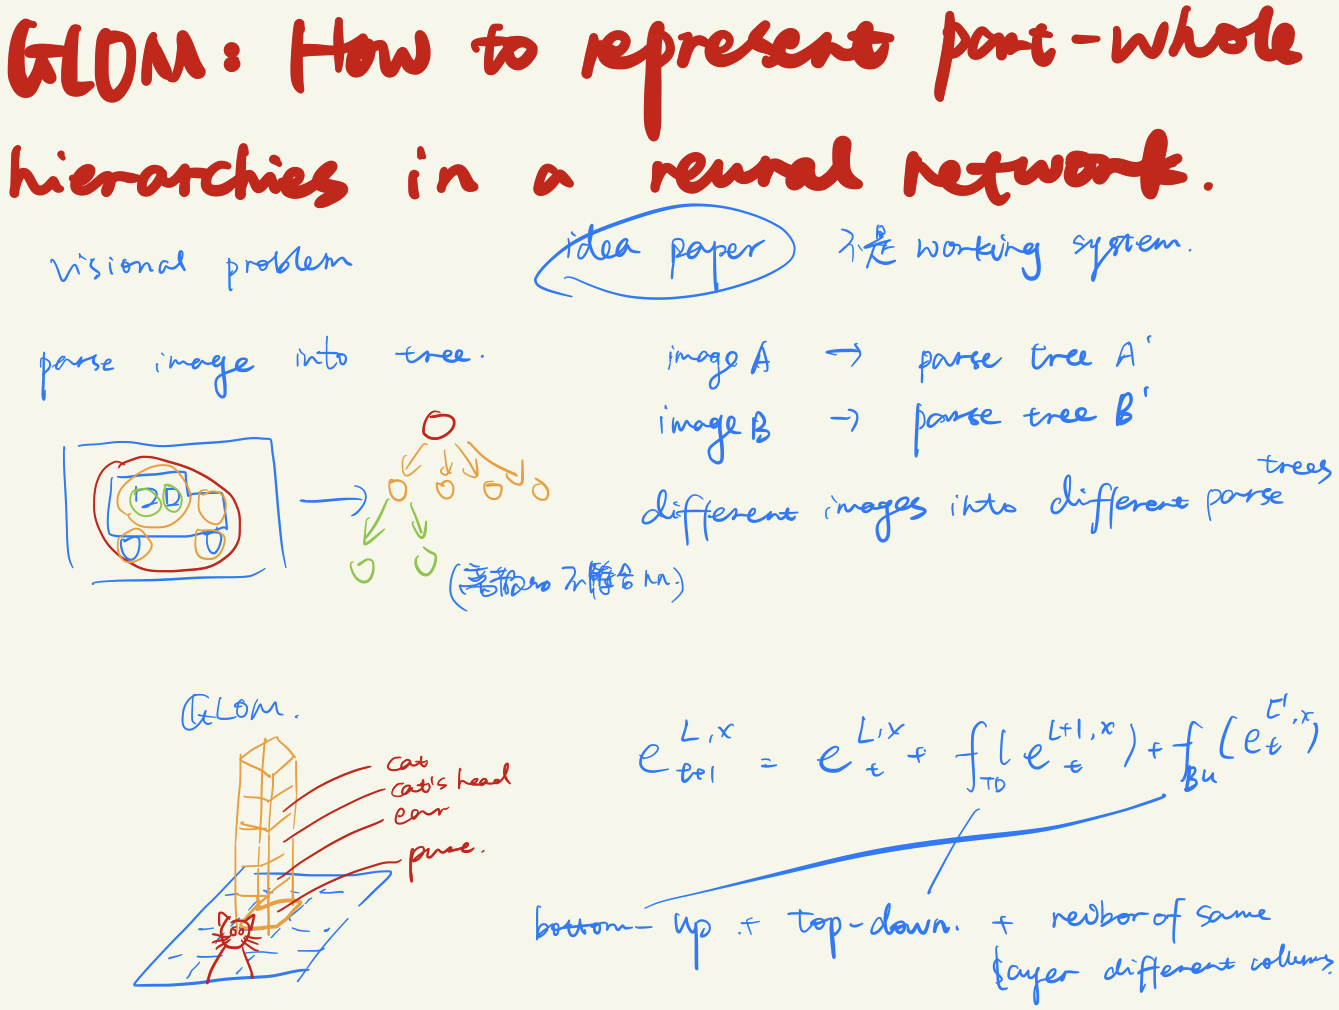 GLOM: How to represent part-whole
hierarchies in a neural network.
visional problem
idea paper 不是 working system.
parse image into tree.
image A → parse tree A'
image B → parse tree B'
different images into different parse trees
GLOM.
cat
cat's head
ear
e_{t+1}^{L,x} = e_t^{L,x} + f_{TD}(e_t^{L+1,x}) + f_{BU}(e_t^{L-1,x})
bottom-up + top-down. + neibor of same
layer different collumns.